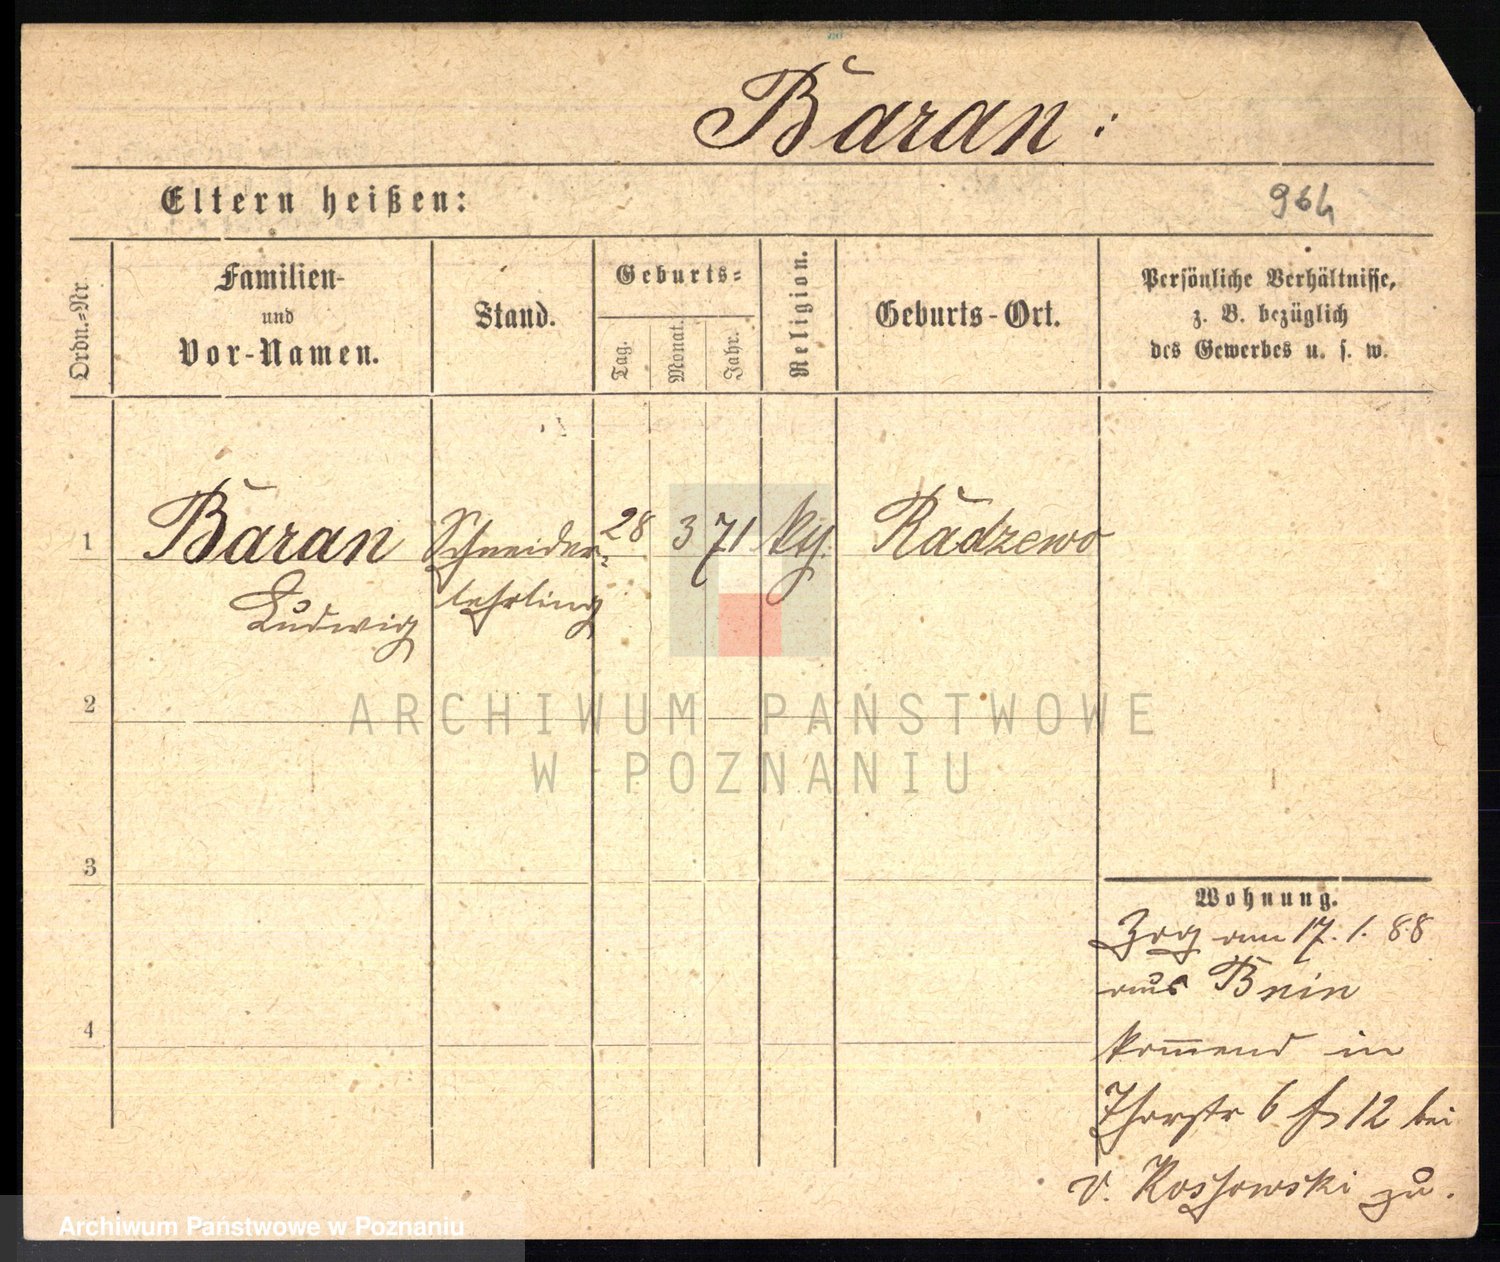 Baran:
Eltern heißen:
964
Ordn.-Nr.
Familien-
und
Vor-Namen.
Stand.
Geburts-
Tag.
Monat.
Jahr.
Religion.
Geburts-Ort.
Persönliche Verhältnisse,
z. B. bezüglich
des Gewerbes u. s. w.
1
Baran
Ludwig
Schneider-
lehrling
28
3
71
Radzewo
2
3
4
Wohnung.
Zog am 17. 1. 88
aus Bnin
kommend in
Thorstr 6 12 bei
v. Kossowski zu.
ARCHIWUM PAŃSTWOWE
W POZNANIU
Archiwum Państwowe w Poznaniu